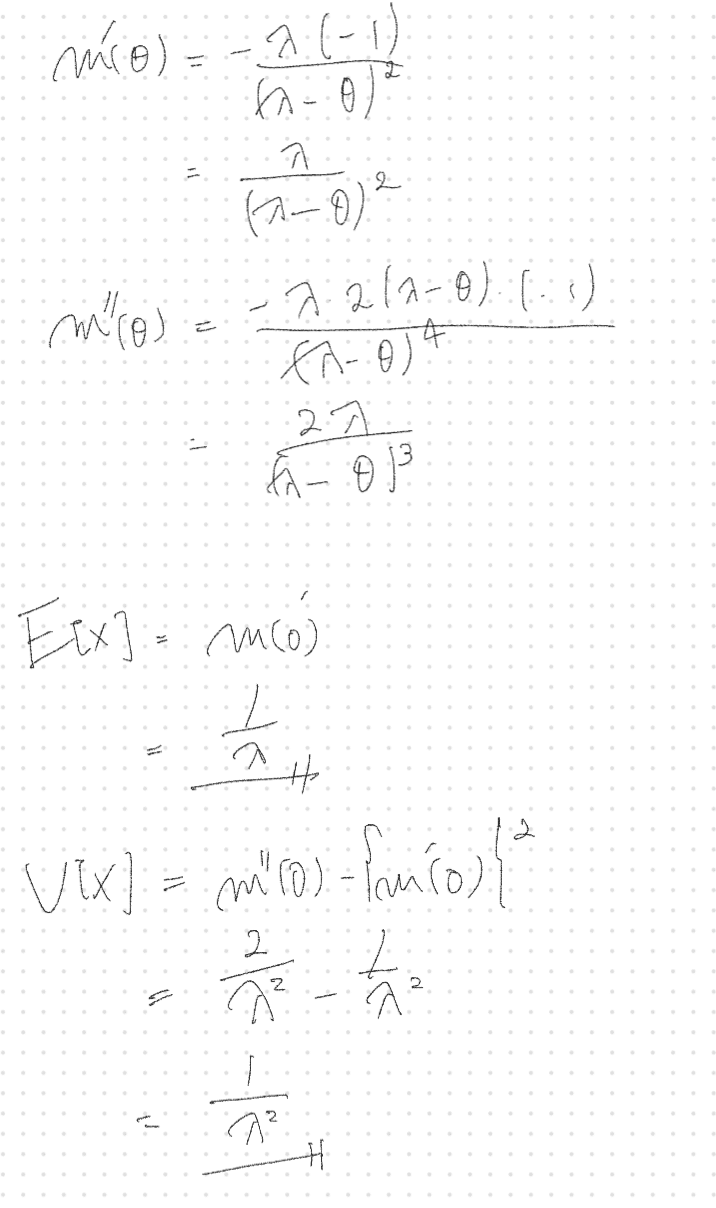 m'(θ) = - λ(-1) / (λ-θ)²
= λ / (λ-θ)²
m''(θ) = -λ 2(λ-θ)·(-1) / (λ-θ)⁴
= 2λ / (λ-θ)³
E[X] = m'(0)
= 1/λ
V[X] = m''(0) - {m'(0)}²
= 2/λ² - 1/λ²
= 1/λ²